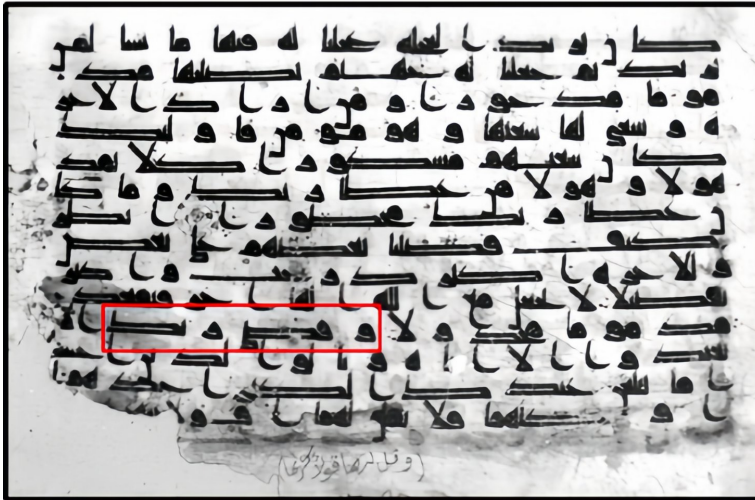 كان يريد العجله عجلنا له فيها ما نشا لمن
نريد ثم جعلنا له جهنم يصليها مذ
موما مدحورا ومن اراد الاخر
ه وسعى لها سعيها وهو مومن فاوليك
كان سعيهم مشكورا كلا نمد
هولا وهولا من عطا ربك وما كا
ن عطا ربك محظورا انظر
كيف فضلنا بعضهم على بعض
وللاخره اكبر درجت واكبر
تفضيلا لا تجعل مع الله الها اخر فتقعد
مذموما مخذولا وقضى ربك الا
تعبدوا الا اياه وبالولدين احسـ
نا اما يبلغن عندك الكبر احدهما
او كلاهما فلا تقل لهما اف ولا
(وقل لهما قولا كريما)